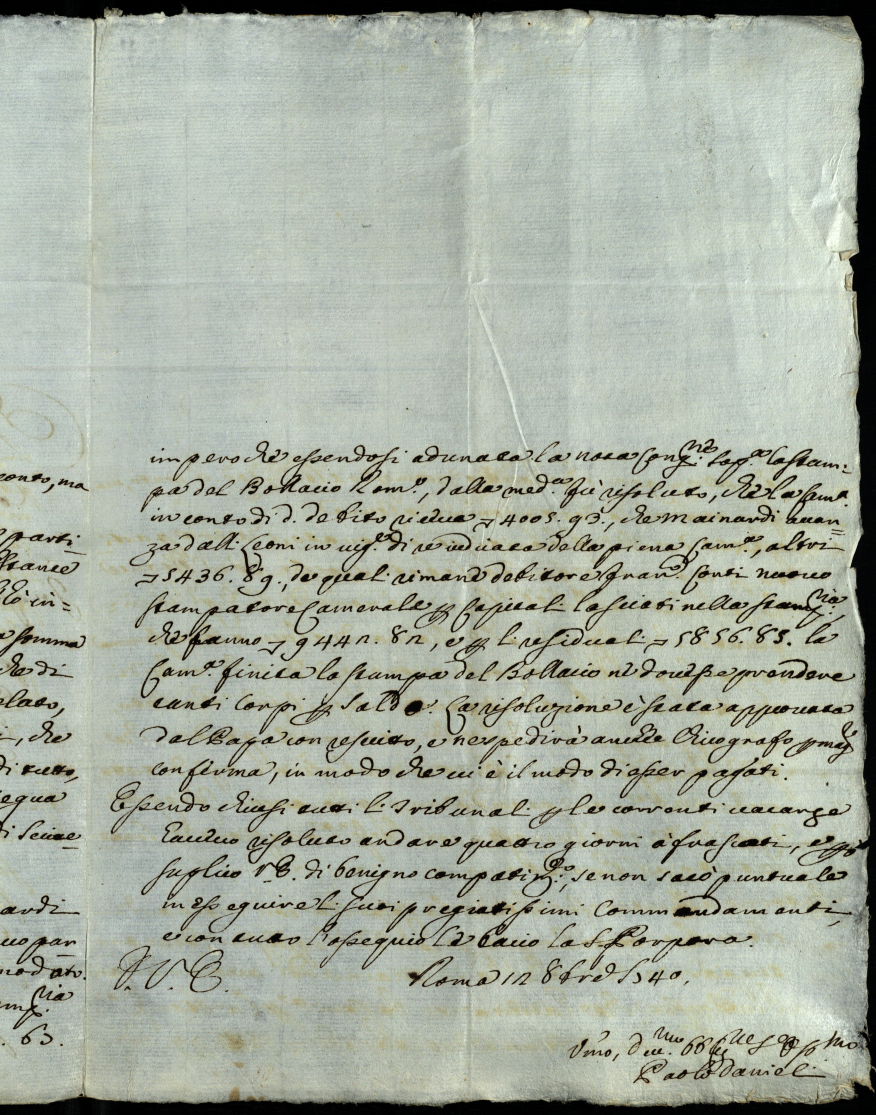 conto, ma
parti=
stanze
in=
somma
che di
che
di tutto,
ardi
uo par
63.
impero che essendosi adunata la nota Cong.ne sop.a la stam=
pa del Bollario Rom.o, dalla med.a fù risoluto, che la Cam.a
in conto di d. debito riceva 4005.93., che Mainardi avan=
za dalli Leoni in vig.e di reduiata della piena Cam.a, altri
5436.89., de quali rimane debitore Fran.co Conti nuovo
stampatore Camerale p Capitali lasciati nella stamp.ria,
che fanno 9442.82, e p li residuali 5856.85. la
Cam.a finita la stampa del Bollario ne dovesse prendere
tanti corpi p saldo. La risoluzione è stata approvata
dal Papa con rescritto, e ne spedirà anche Chirografo p mag.e
conferma, in modo che vi è il modo di esser pagati.
Essendo chiusi tutti li Tribunali p le correnti vacanze
hanno risoluto andare quattro giorni à Frascati, e p.ò
suplico V.E. di benigno compatim.to, se non sarò puntuale
in esseguire li suoi pregiatissimi Commandamenti,
e con tutto l'ossequio le bacio la S. Porpora.
Roma 12 8bre 1740.
Paolo Danieli